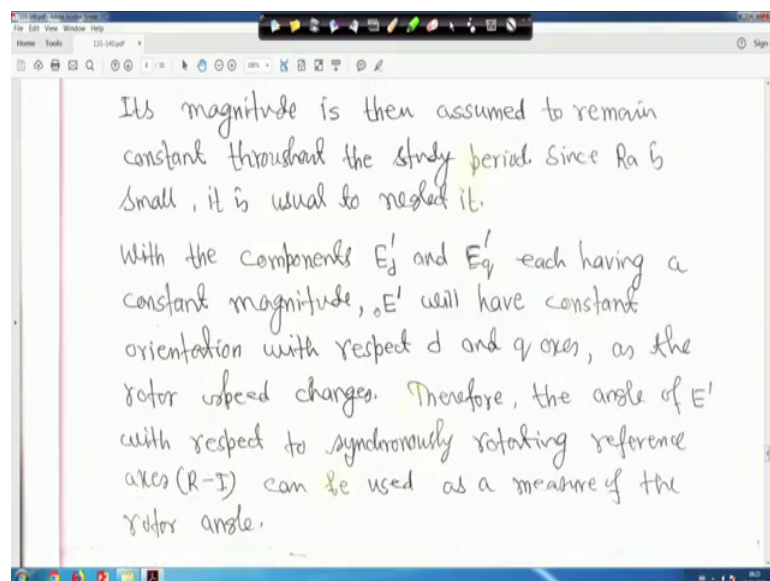 131-140.pdf - Adobe Acrobat Reader DC
File Edit View Window Help
Home Tools 131-140.pdf × Sign
Its magnitude is then assumed to remain
constant throughout the study period. Since Ra is
small, it is usual to neglect it.
With the components E'd and E'q each having a
constant magnitude, E' will have constant
orientation with respect d and q axes, as the
rotor speed changes. Therefore, the angle of E'
with respect to synchronously rotating reference
axes (R-I) can be used as a measure of the
rotor angle.